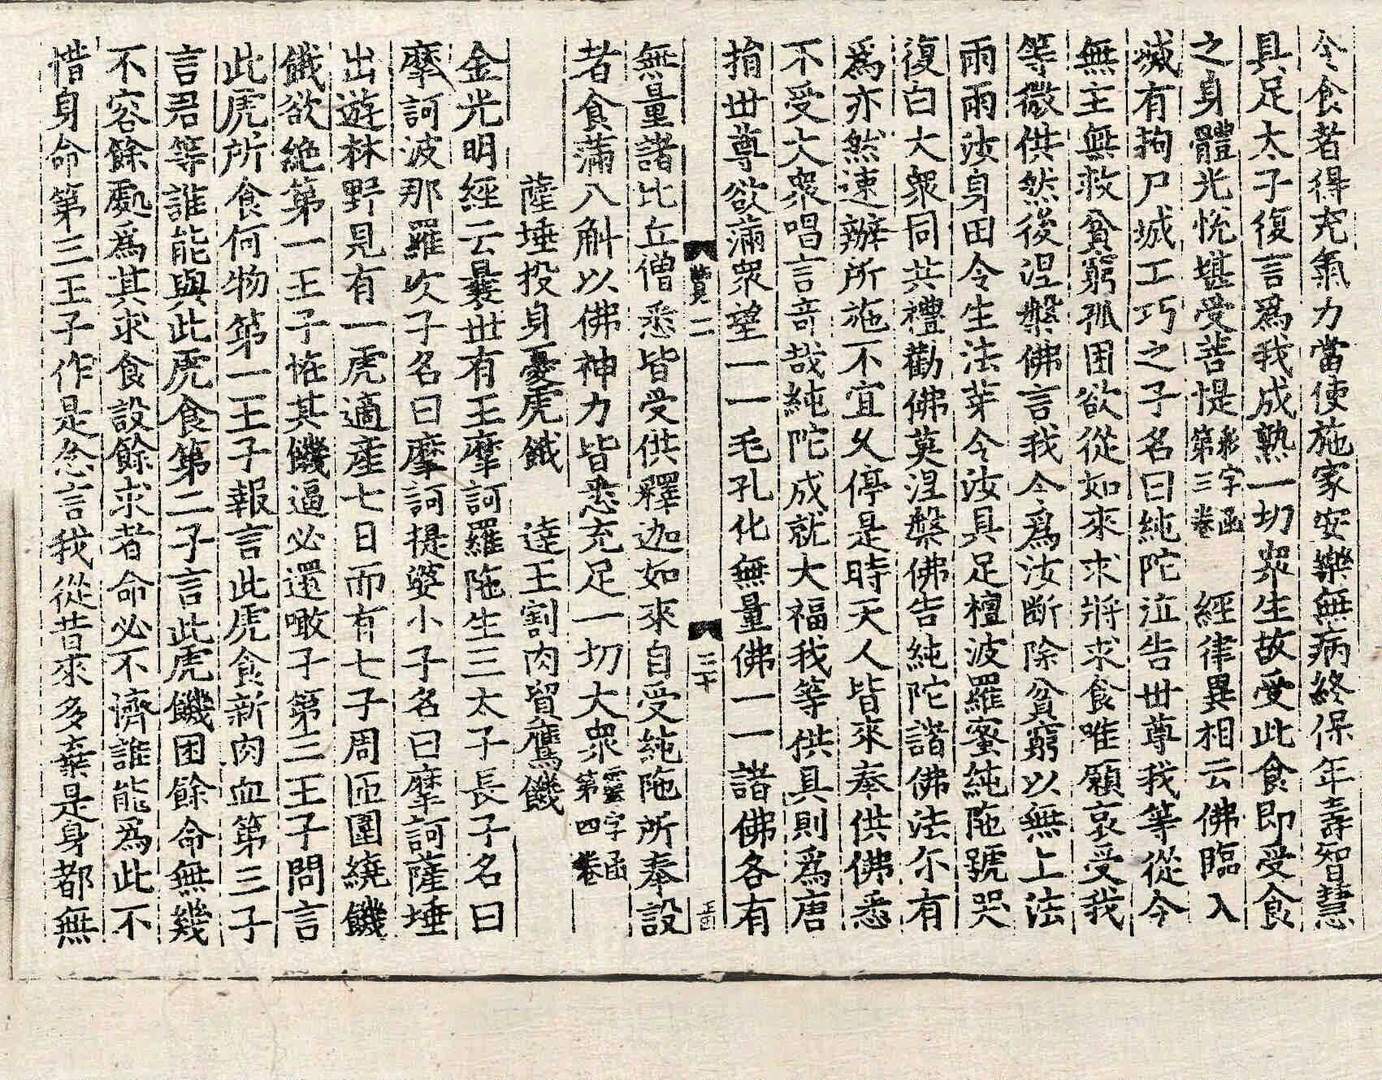 令食者得充氣力當使施家安樂無病終保年壽智慧
具足太子復言爲我成熟一切衆生故受此食即受食
之身體光恱堪受菩提第三卷彩字函 經律異相云佛臨入
滅有拘尸城工巧之子名曰純陀泣告世尊我等從今
無主無救貧窮孤困欲從如來求將求食唯願哀受我
等微供然後涅槃佛言我今爲汝斷除貧窮以無上法
雨雨汝身田令生法芽令汝具足檀波羅蜜純陁號哭
復白大衆同共禮勸佛莫涅槃佛告純陀諸佛法尒有
爲亦然速辦所施不宜久停是時天人皆來奉供佛悉
不受大衆唱言竒哉純陀成就大福我等供具則爲唐
捐世尊欲滿衆望一一毛孔化無量佛一一諸佛各有
賢二 三十 正因
無量諸比丘僧悉皆受供釋迦如來自受純陁所奉設
者食滿八斛以佛神力皆悉充足一切大衆第四卷靈字函
薩埵投身憂虎餓 達王割肉貿鷹饑
金光明經云曩世有王摩訶羅陁生三太子長子名曰
摩訶波那羅次子名曰摩訶提婆小子名曰摩訶薩埵
出遊林野見有一虎適產七日而有七子周匝圍繞饑
餓欲絶第一王子恠其饑逼必還噉子第三王子問言
此虎所食何物第一王子報言此虎食新肉血第三子
言君等誰能與此虎食第二子言此虎饑困餘命無幾
不容餘處爲其求食設餘求者命必不濟誰能爲此不
惜身命第三王子作是念言我從昔來多棄是身都無